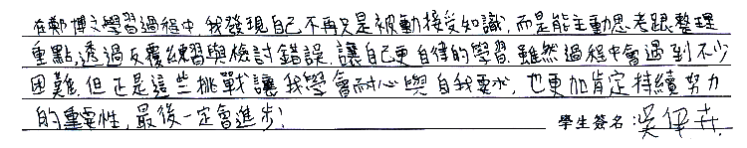 在鄭博文學習過程中,我發現自己不再只是被動接受知識,而是能主動思考跟整理
重點,透過反覆練習與檢討錯誤,讓自己更自律的學習.雖然過程中會遇到不少
困難,但正是這些挑戰讓我學會耐心與自我要求,也更加肯定持續努力
的重要性,最後一定會進步!
學生簽名:吳伊卉.